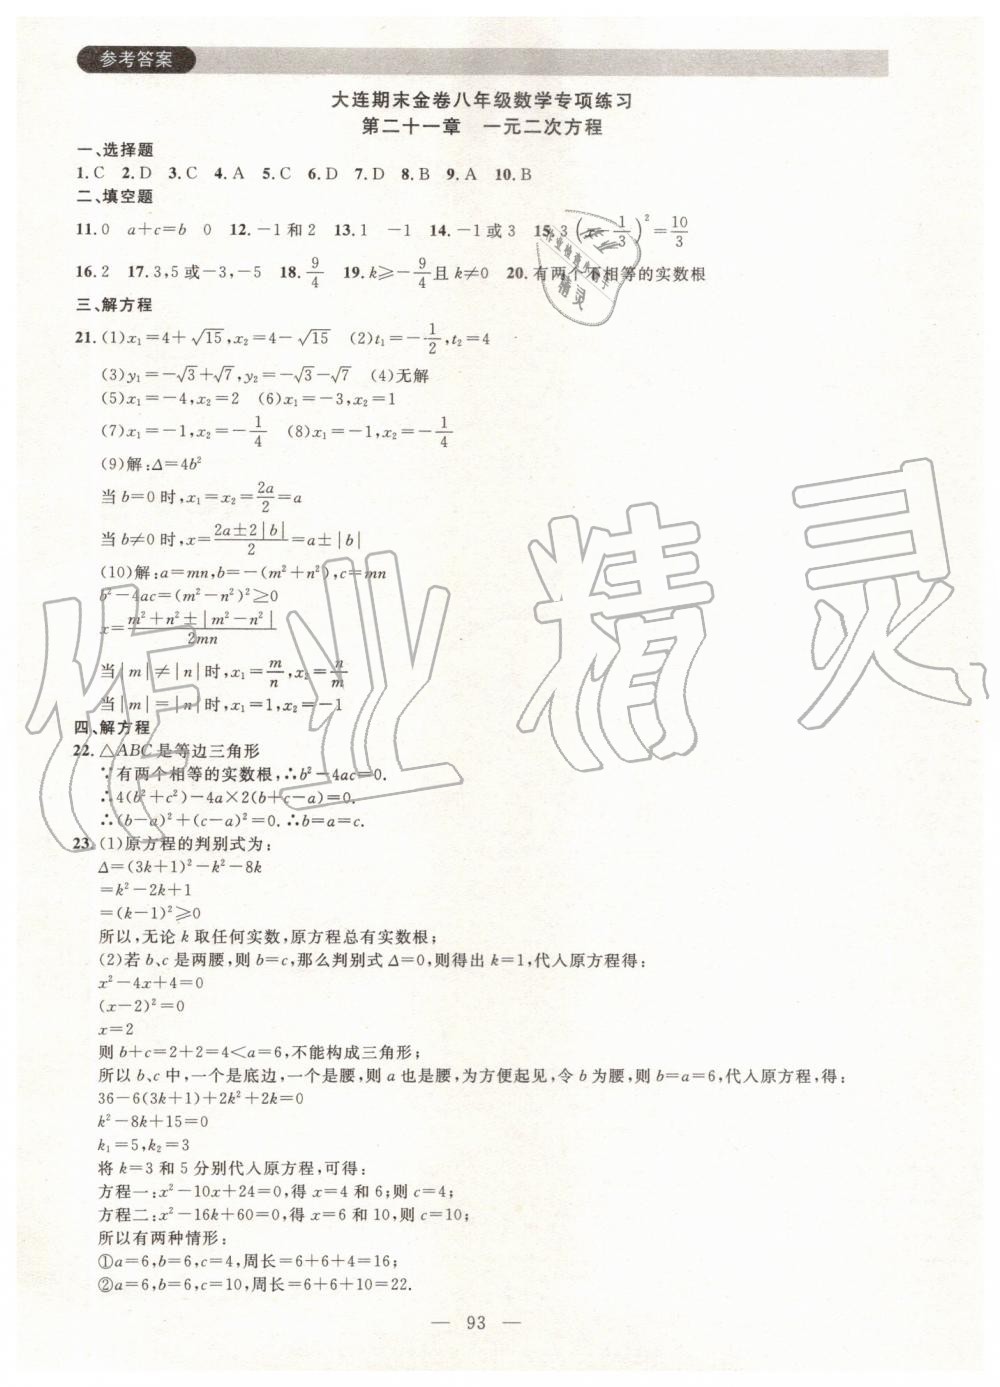 参考答案
大连期末金卷八年级数学专项练习
第二十一章 一元二次方程
一、选择题
1.C 2.D 3.C 4.A 5.C 6.D 7.D 8.B 9.A 10.B
二、填空题
11.0 a+c=b 0 12.-1和2 13.1 -1 14.-1或3 15.3 (x-1/3)²=10/3
16.2 17.3,5或-3,-5 18.9/4 19.k≥-9/4且k≠0 20.有两个不相等的实数根
三、解方程
21.(1)x₁=4+√15,x₂=4-√15 (2)t₁=-1/2,t₂=4
(3)y₁=-√3+√7,y₂=-√3-√7 (4)无解
(5)x₁=-4,x₂=2 (6)x₁=-3,x₂=1
(7)x₁=-1,x₂=-1/4 (8)x₁=-1,x₂=-1/4
(9)解:Δ=4b²
当b=0时,x₁=x₂=2a/2=a
当b≠0时,x=(2a±2|b|)/2=a±|b|
(10)解:a=mn,b=-(m²+n²),c=mn
b²-4ac=(m²-n²)²≥0
x=(m²+n²±|m²-n²|)/2mn
当|m|≠|n|时,x₁=m/n,x₂=n/m
当|m|=|n|时,x₁=1,x₂=-1
四、解方程
22.△ABC是等边三角形
∵有两个相等的实数根,∴b²-4ac=0.
∴4(b²+c²)-4a×2(b+c-a)=0.
∴(b-a)²+(c-a)²=0.∴b=a=c.
23.(1)原方程的判别式为:
Δ=(3k+1)²-k²-8k
=k²-2k+1
=(k-1)²≥0
所以,无论k取任何实数,原方程总有实数根;
(2)若b、c是两腰,则b=c,那么判别式Δ=0,则得出k=1,代入原方程得:
x²-4x+4=0
(x-2)²=0
x=2
则b+c=2+2=4<a=6,不能构成三角形;
所以b、c中,一个是底边,一个是腰,则a也是腰,为方便起见,令b为腰,则b=a=6,代入原方程,得:
36-6(3k+1)+2k²+2k=0
k²-8k+15=0
k₁=5,k₂=3
将k=3和5分别代入原方程,可得:
方程一:x²-10x+24=0,得x=4和6;则c=4;
方程二:x²-16k+60=0,得x=6和10,则c=10;
所以有两种情形:
①a=6,b=6,c=4,周长=6+6+4=16;
②a=6,b=6,c=10,周长=6+6+10=22.
— 93 —
作业精灵
精灵